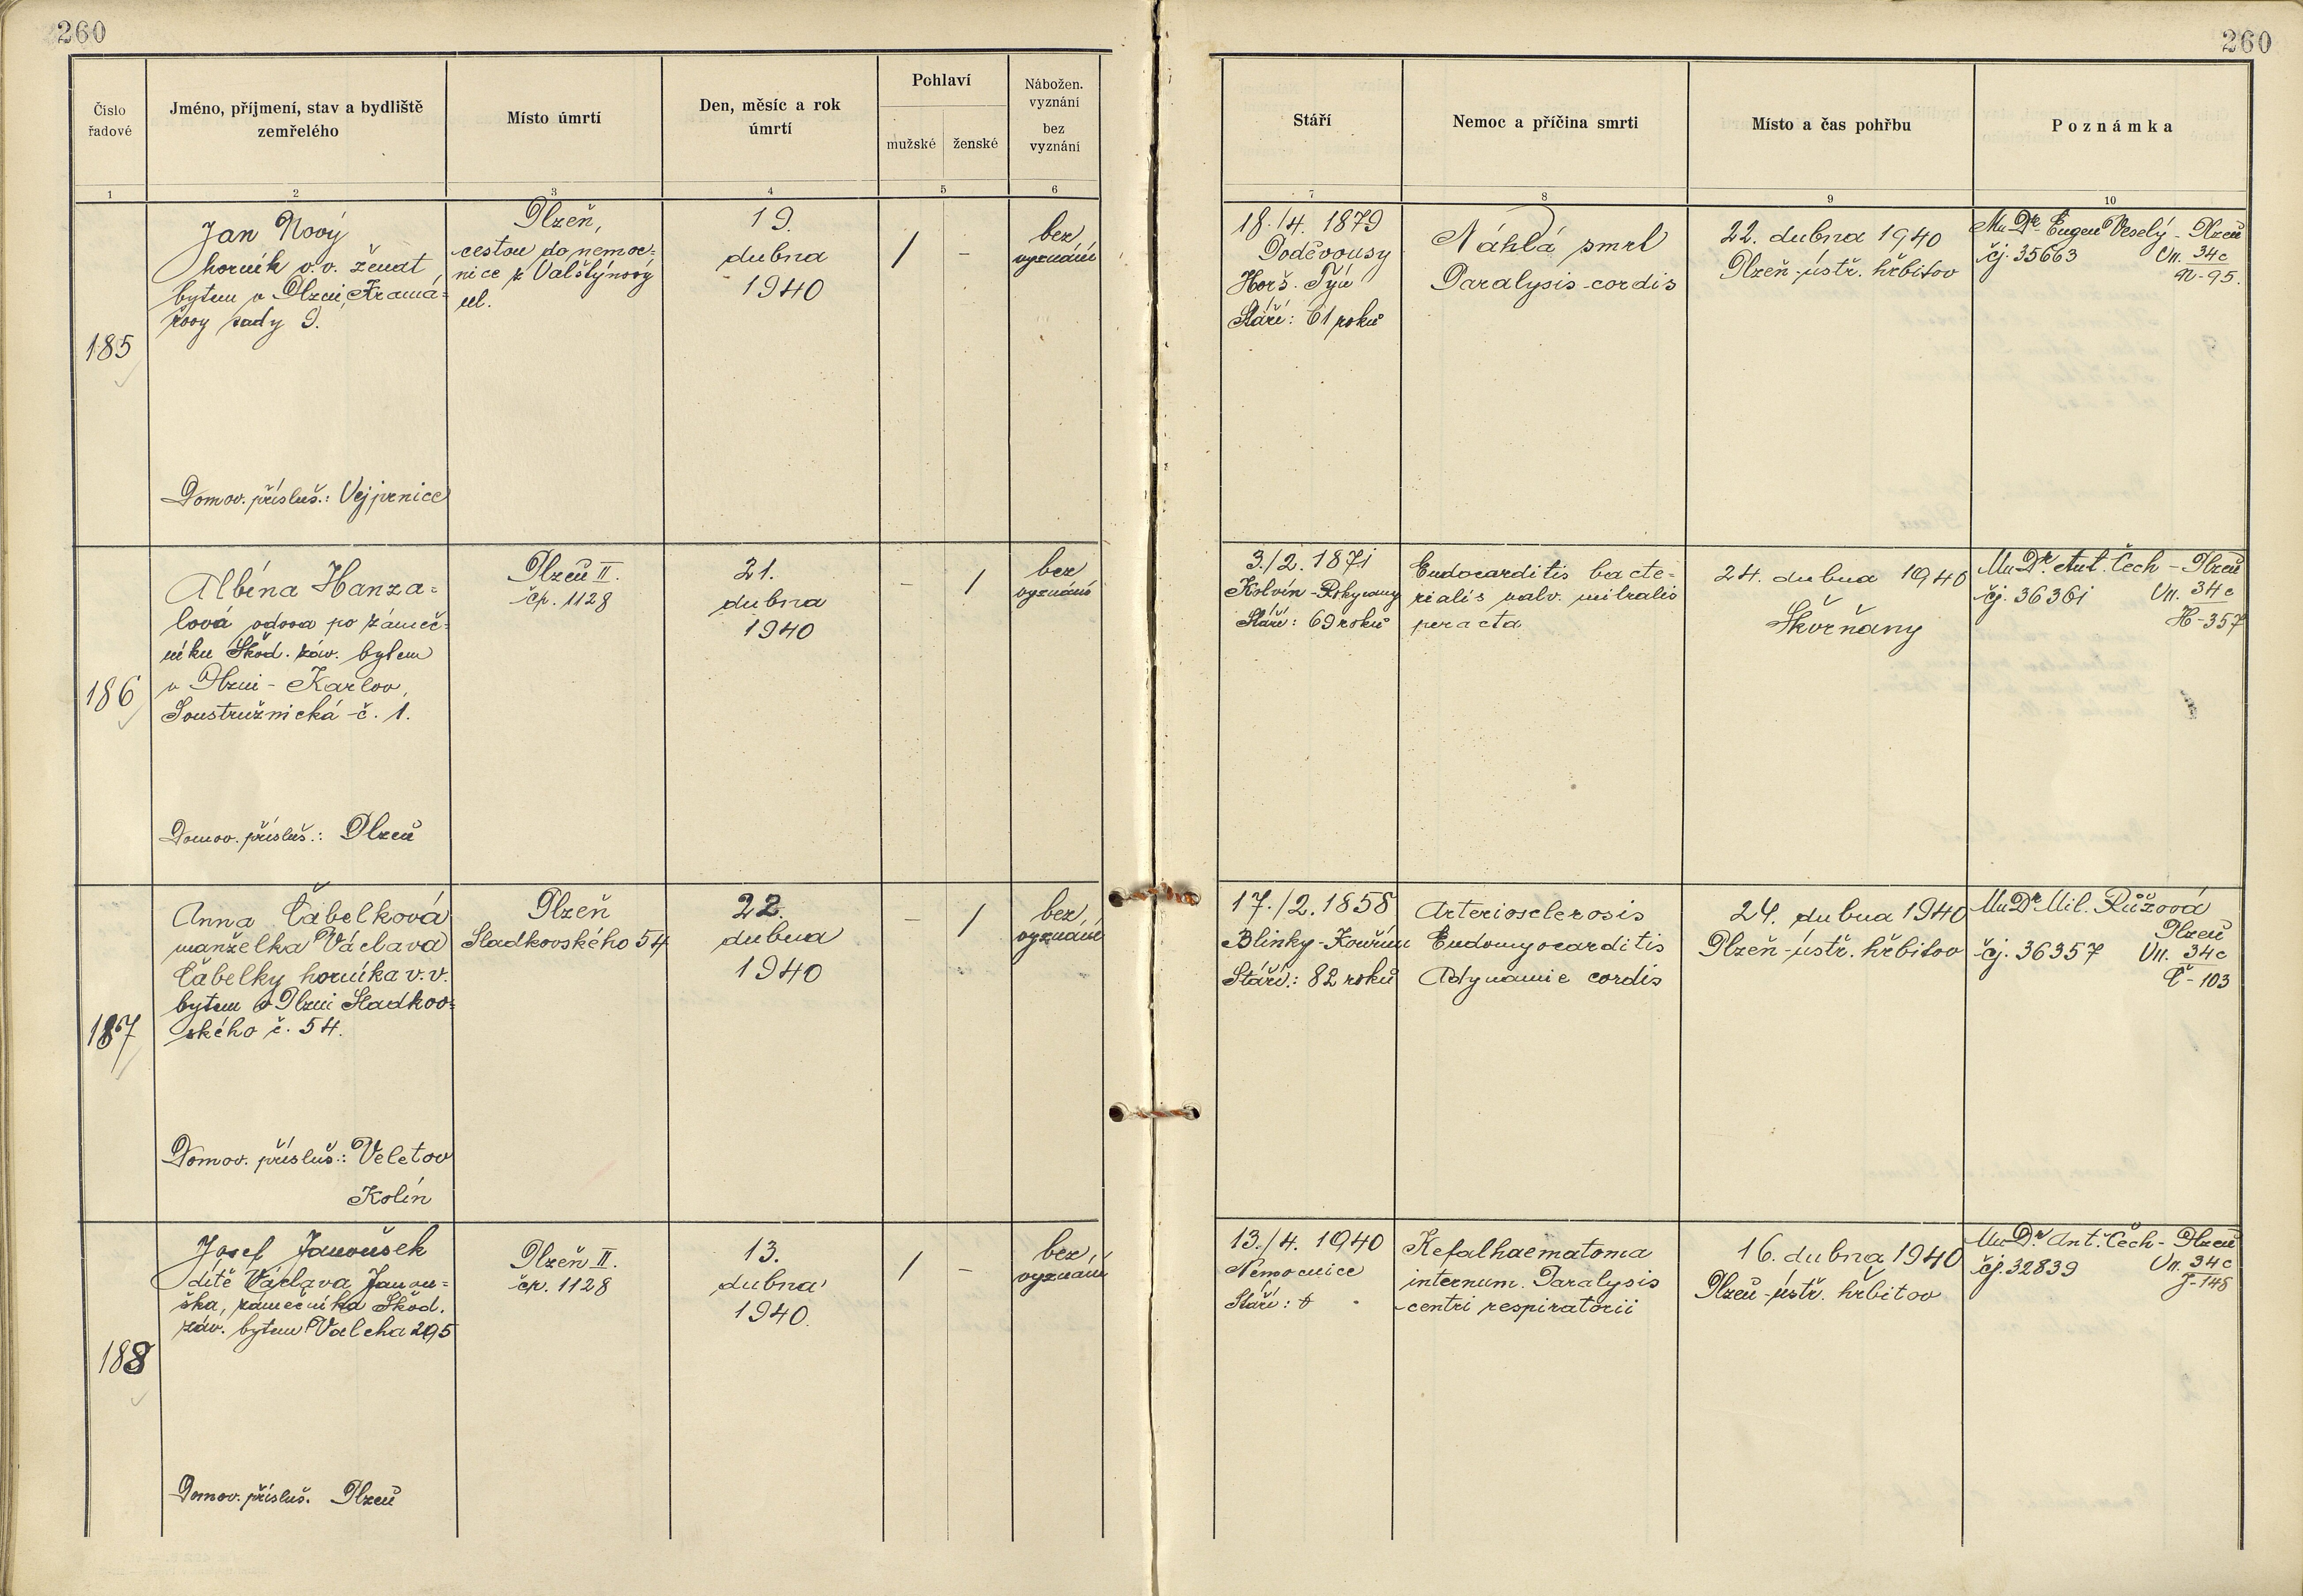 260
260
Číslo řadové
Jméno, příjmení, stav a bydliště zemřelého
Místo úmrtí
Den, měsíc a rok úmrtí
Pohlaví
mužské
ženské
Nábožen. vyznání
bez vyznání
Stáří
Nemoc a příčina smrti
Místo a čas pohřbu
Poznámka
1
2
3
4
5
6
7
8
9
10
185
Jan Nový
horník v. v. ženat,
bytem v Plzni, Kramá-
řovy sady 9.
Domov. přísluš.: Vejprnice
Plzeň,
cestou do nemoc-
nice z Valštýnovy
ul.
19.
dubna
1940
/
-
bez
vyznání
18./4. 1879
Horš. Týn
Stáří: 61 roků
Náhlá smrt
Paralysis cordis
22. dubna 1940
Plzeň-ústř. hřbitov
MuDr. Eugen Veselý - Plzeň
čj. 35663 VII. 34c
N-95.
186
Albína Hanza-
lová vdova po zámeč-
níku Škod. záv. bytem
v Plzni - Karlov,
Soustružnická č. 1.
Domov. přísluš.: Plzeň
Plzeň II.
čp. 1128
21.
dubna
1940
-
/
bez
vyznání
3./2. 1871
Kolvín-Rokycany
Stáří: 69 roků
Endocarditis bacte-
rialis valv. mitralis
peracta
24. dubna 1940
Skvrňany
MuDr. Ant. Čech - Plzeň
čj. 36361 VII. 34c
H-357
187
Anna Čabelková
manželka Václava
Čabelky horníka v. v.
bytem v Plzni Sladkov-
ského č. 54.
Domov. přísluš.: Veletov
Kolín
Plzeň
Sladkovského 54
22.
dubna
1940
-
/
bez
vyznání
17./2. 1858
Blinky-Kouřim
Stáří: 82 roků
Arteriosclerosis
Endomyocarditis
Adynamie cordis
24. dubna 1940
Plzeň-ústř. hřbitov
MuDr. Mil. Růžová
Plzeň
čj. 36357 VII. 34c
Č-103
188
Josef Janoušek
dítě Václava Janou-
ška, zámečníka Škod.
záv. bytem Valcha 295
Domov. přísluš. Plzeň
Plzeň II.
čp. 1128
13.
dubna
1940.
/
-
bez
vyznání
13./4. 1940
Nemocnice
Stáří:
Kefalhaematoma
internum. Paralysis
centri respiratorii
16. dubna 1940
Plzeň-ústř. hřbitov
MuDr. Ant. Čech - Plzeň
čj. 32839 VII. 34c
J-148